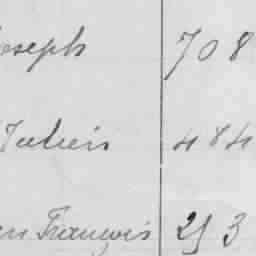 oseph 708
Julien 484
en François 253